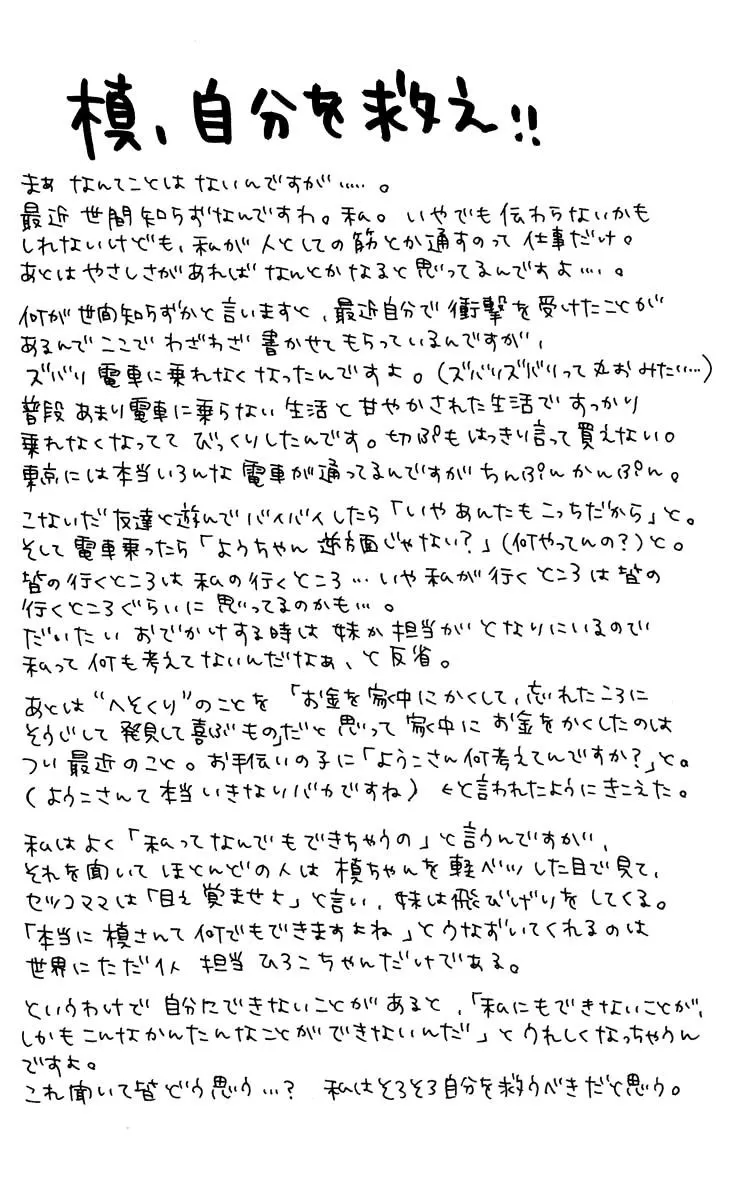 槙、自分を救え!!
まぁ なんてことは ないんですが……。
最近 世間知らずなんですわ。私。いやでも伝わらないかも
しれないけども、私が人としての筋とか通すのって仕事だけ。
あとは やさしさがあれば なんとかなると思ってるんですよ…。
何が世間知らずかと言いますと、最近自分で衝撃を受けたことが
あるんで ここで わざわざ 書かせてもらっているんですが、
ズバリ 電車に乗れなくなったんですよ。(ズバリズバリって丸おみたい…)
普段 あまり電車に乗らない 生活と甘やかされた生活で すっかり
乗れなくなってて びっくりしたんです。切ぷも はっきり言って買えない。
東京には本当いろんな 電車が通ってるんですが ちんぷんかんぷん。
こないだ 友達と遊んで バイバイしたら「いや あんたもこっちだから」と。
そして 電車乗ったら「ようちゃん 逆方面じゃない?」(何やってんの?)と。
皆の行くところは 私の行くところ… いや 私が行くところは 皆の
行くところぐらいに 思ってるのかも…。
だいたい おでかけする時は 妹か担当が となりにいるので
私って何も考えてないんだなぁ、と反省。
あとは“へそくり”のことを 「お金を家中にかくして、忘れたころに
そうじして 発見して喜ぶもの」だと思って 家中に お金をかくしたのは
つい最近のこと。お手伝いの子に「ようこさん何考えてんですか?」と。
(ようこさんて本当いきなりバカですね) ←と言われたようにきこえた。
私はよく「私ってなんでもできちゃうの」と言うんですが、
それを聞いて ほとんどの人は 槙ちゃんを軽ベツした目で見て、
セツコママは「目ぇ覚ませよ」と言い、妹は飛びげりをしてくる。
「本当に槙さんて何でもできますよね」とうなずいてくれるのは
世界にただ1人 担当 ひろこちゃんだけである。
というわけで 自分にできないことがあると、「私にもできないことが、
しかもこんなかんたんなことができないんだ」と うれしくなっちゃうん
ですよ。
これ聞いて皆どう思う…? 私はそろそろ自分を救うべきだと思う。